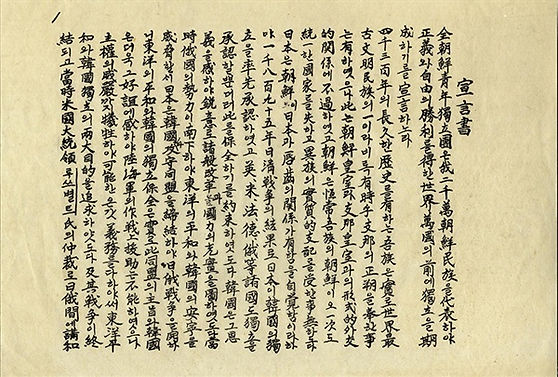 宣言書
全朝鮮青年獨立團은我二千萬朝鮮民族을代表하야
正義와自由의勝利를得한世界萬國의前에獨立을期
成하기를宣言하노라
四千三百年의長久한歷史를有하는吾族은實로世界最
古文明民族의一이라비록有時乎支那의正朔을奉한事
는有하엿으나此는朝鮮皇室과支那皇室과의形式的外交
的關係에不過하엿고朝鮮은恒常吾族의朝鮮이오一次도
統一한國家를失하고異族의實質的支配를受한事無하도다
日本은朝鮮이日本과脣齒의關係가有함을自覺함이라하
야一千八百九十五年日清戰爭의結果로日本이韓國의獨
立을率先承認하엿고英米法德俄等諸國도獨立을
承認할뿐더러此를保全하기를約束하엿도다韓國은그恩
義를感하야銳意로諸般改革과國力의充實을圖하엿도다當
時俄國의勢力이南下하야東洋의平和와韓國의安寧을
威脅할새日本은韓國과攻守同盟을締結하야日俄戰爭을開하
니東洋의平和와韓國의獨立保全은實로此同盟의主旨와韓國
은더욱그好誼에感하야陸海軍의作戰上援助는不能하엿으나
主權의威嚴까지犧牲하야可能한온갓義務를다하야써東洋平
和와韓國獨立의兩大目的을追求하얏도다及其戰爭이終
結되고當時米國大統領루쓰벨트氏의仲裁로日俄間에講和
1